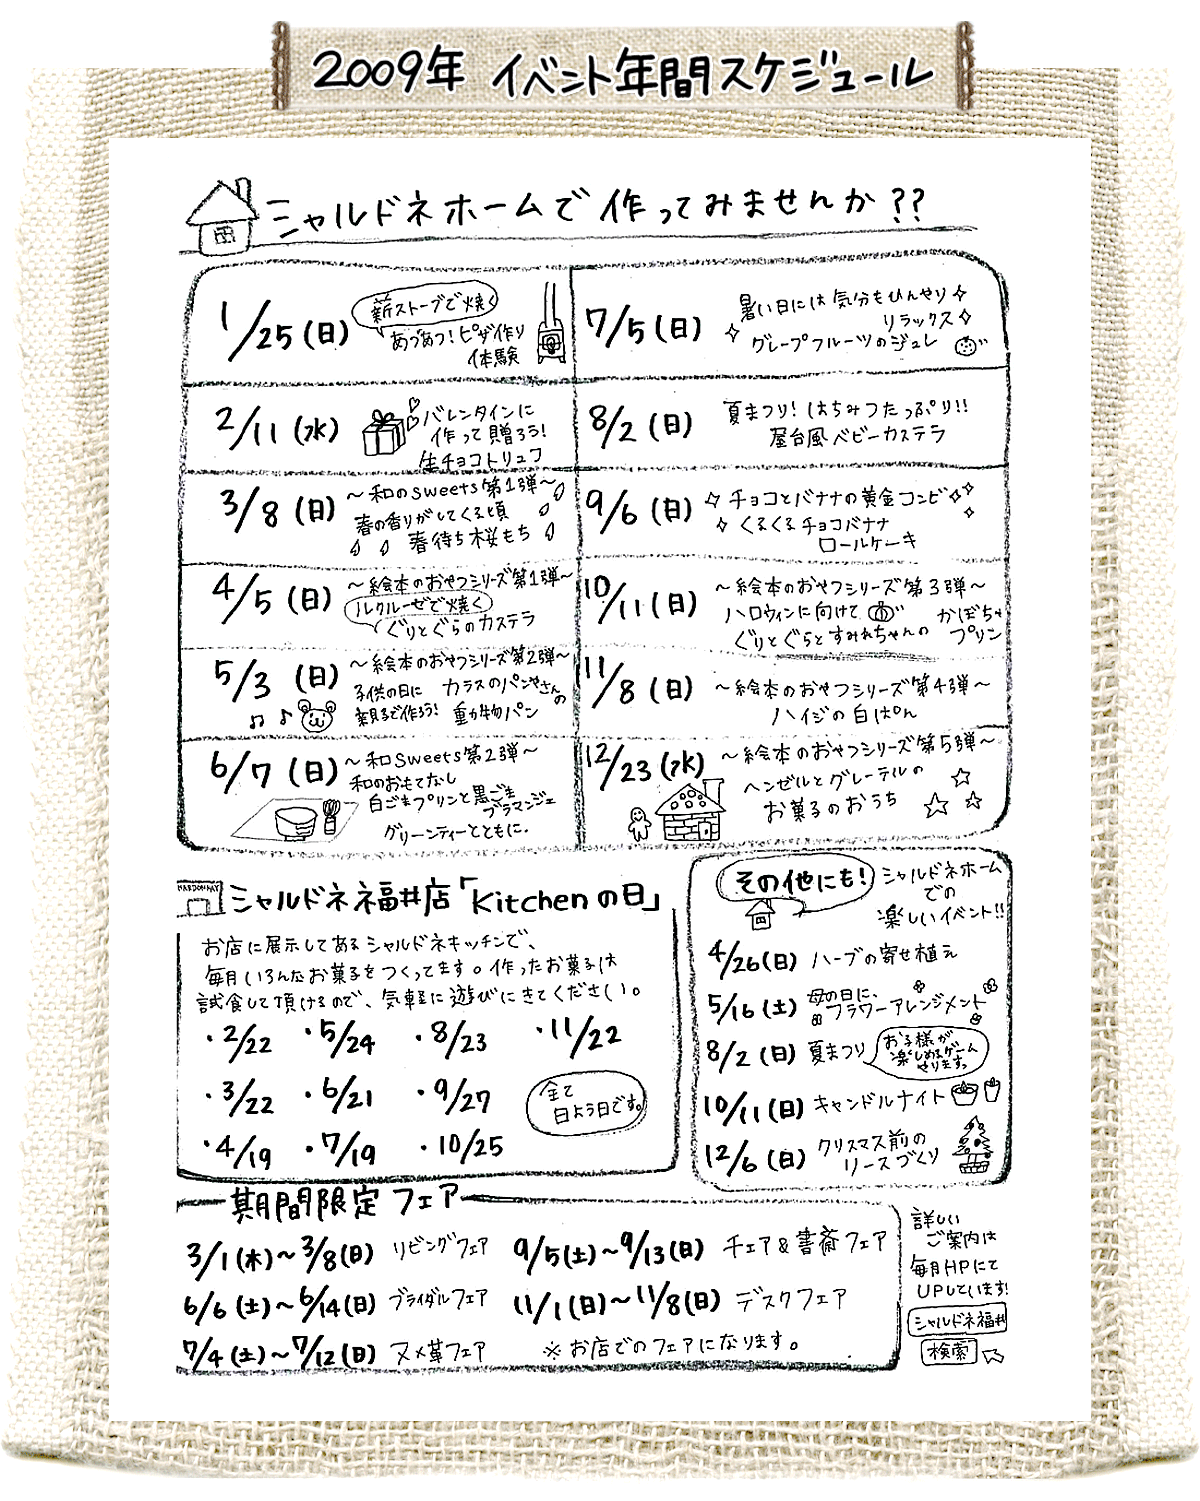 2009年 イベント年間スケジュール
シャルドネホームで作ってみませんか??
1/25(日)
薪ストーブで焼く
あつあつ!ピザ作り
体験
2/11(水)
バレンタインに
作って贈ろう!
生チョコトリュフ
3/8(日)
~和のsweets第1弾~
春の香りがしてくる頃
春待ち桜もち
4/5(日)
~絵本のおやつシリーズ第1弾~
ルクルーゼで焼く
ぐりとぐらのカステラ
5/3(日)
~絵本のおやつシリーズ第2弾~
子供の日に
親子で作ろう!
カラスのパンやさんの
動物パン
6/7(日)
~和sweets第2弾~
和のおもてなし
白ごまプリンと黒ごま
ブラマンジェ
グリーンティーとともに.
7/5(日)
暑い日には気分もひんやり
リラックス
グレープフルーツのジュレ
8/2(日)
夏まつり!はちみつたっぷり!!
屋台風ベビーカステラ
9/6(日)
チョコとバナナの黄金コンビ
くるくるチョコバナナ
ロールケーキ
10/11(日)
~絵本のおやつシリーズ第3弾~
ハロウィンに向けて
ぐりとぐらとすみれちゃんの
かぼちゃ
プリン
11/8(日)
~絵本のおやつシリーズ第4弾~
ハイジの白ぱん
12/23(水)
~絵本のおやつシリーズ第5弾~
ヘンゼルとグレーテルの
お菓子のおうち
シャルドネ福井店「Kitchenの日」
お店に展示してあるシャルドネキッチンで、
毎月いろんなお菓子をつくってます。作ったお菓子は
試食して頂けるので、気軽に遊びにきてください。
・2/22 ・5/24 ・8/23 ・11/22
・3/22 ・6/21 ・9/27
・4/19 ・7/19 ・10/25
全て
日よう日です。
その他にも!
シャルドネホーム
での
楽しいイベント!!
4/26(日) ハーブの寄せ植え
5/16(土) 母の日に、
フラワーアレンジメント
8/2(日) 夏まつり
お子様が
楽しめるゲーム
やります。
10/11(日) キャンドルナイト
12/6(日) クリスマス前の
リースづくり
期間限定フェア
3/1(木)~3/8(日) リビングフェア
6/6(土)~6/14(日) ブライダルフェア
7/4(土)~7/12(日) ヌメ革フェア
9/5(土)~9/13(日) チェア&書斎フェア
11/1(日)~11/8(日) デスクフェア
※お店でのフェアになります。
詳しい
ご案内は
毎月HPにて
UPしています!
シャルドネ福井
検索